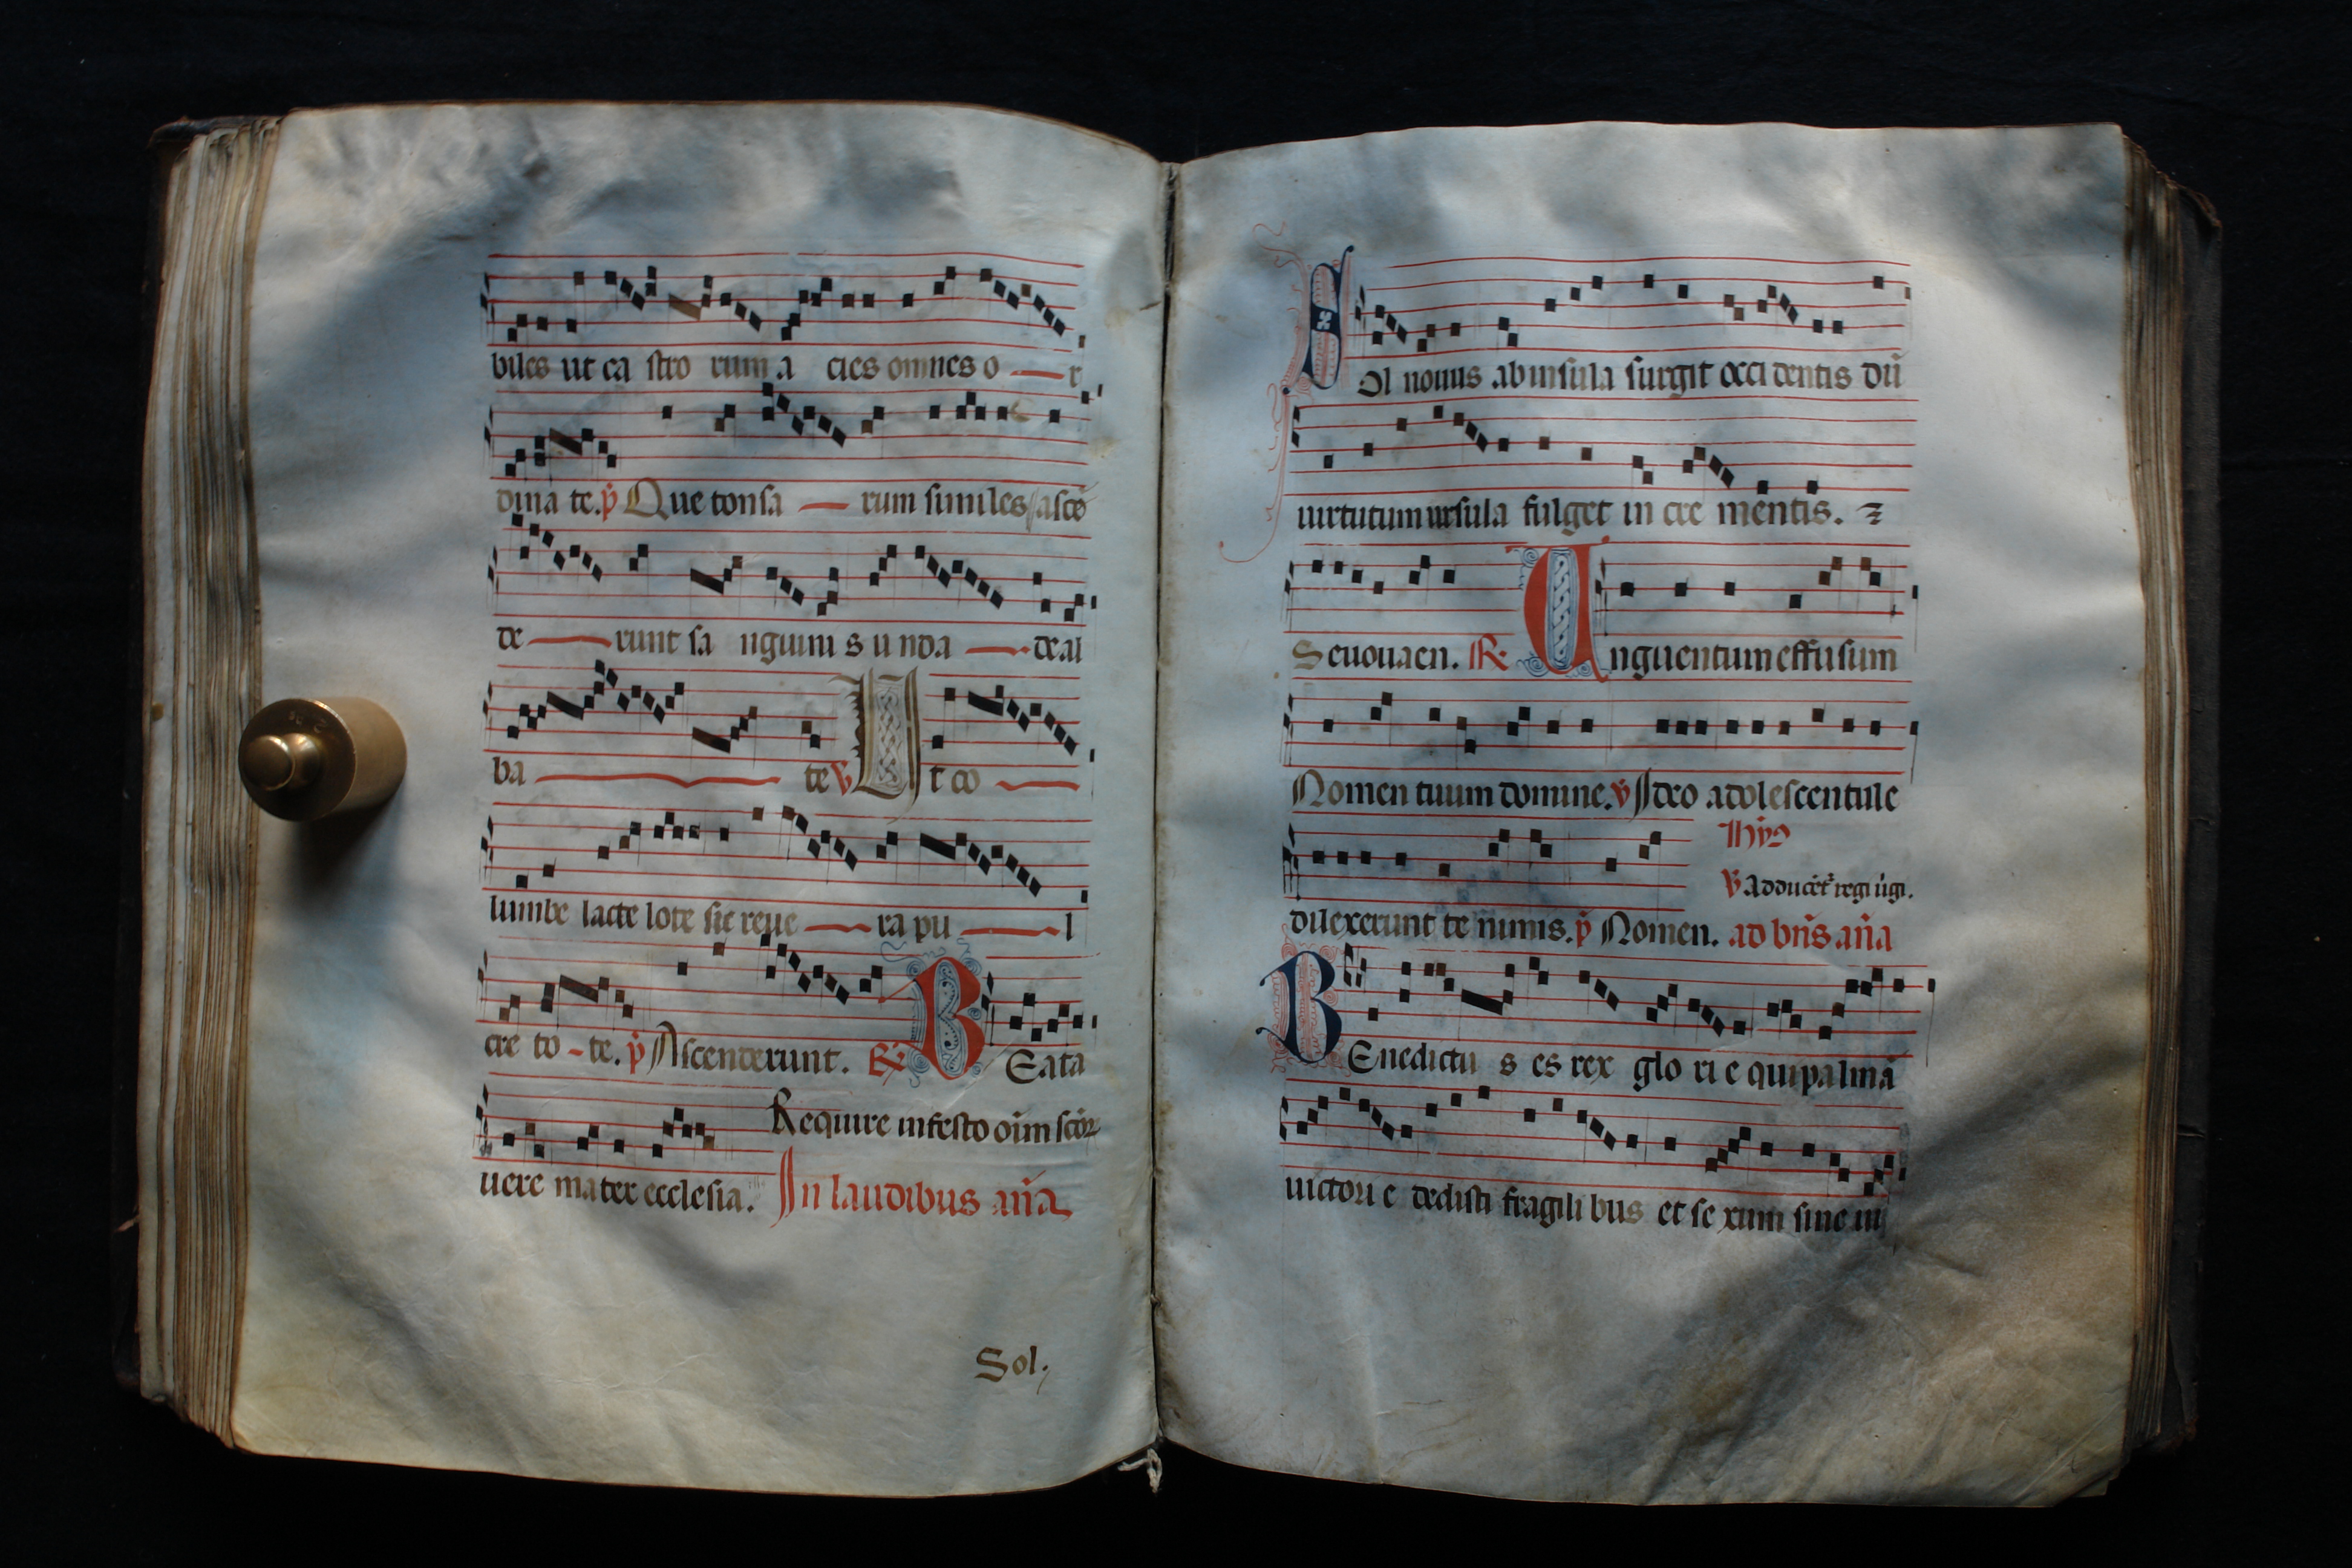 biles ut ca stro rum a cies omnes o r
dina te. p̄ Que tonsa rum similes asce
de runt sa nguini s unda de al
ba te ꝟ Ut co
lumbe lacte lote sic reue ra pu l
cre to - te. p̄ Ascenderunt. ℟ BEata
Require in festo oīm scōꝝ
uere mater ecclesia. In laudibus an̄a
Sol.
SOl nouus ab insula surgit occi dentis dū
uirtutum ursula fulget in cre mentis.
Seuouaen. ℟ Unguentum effusum
Nomen tuum domine. ꝟ Ideo adolescentule
ꝟ adducēt regi
dilexerunt te nimis. p̄ Nomen. ad bn̄s an̄a
BEnedictu s es rex glo ri e qui palmā
uictori e dedisti fragili bus et se xum sine iu